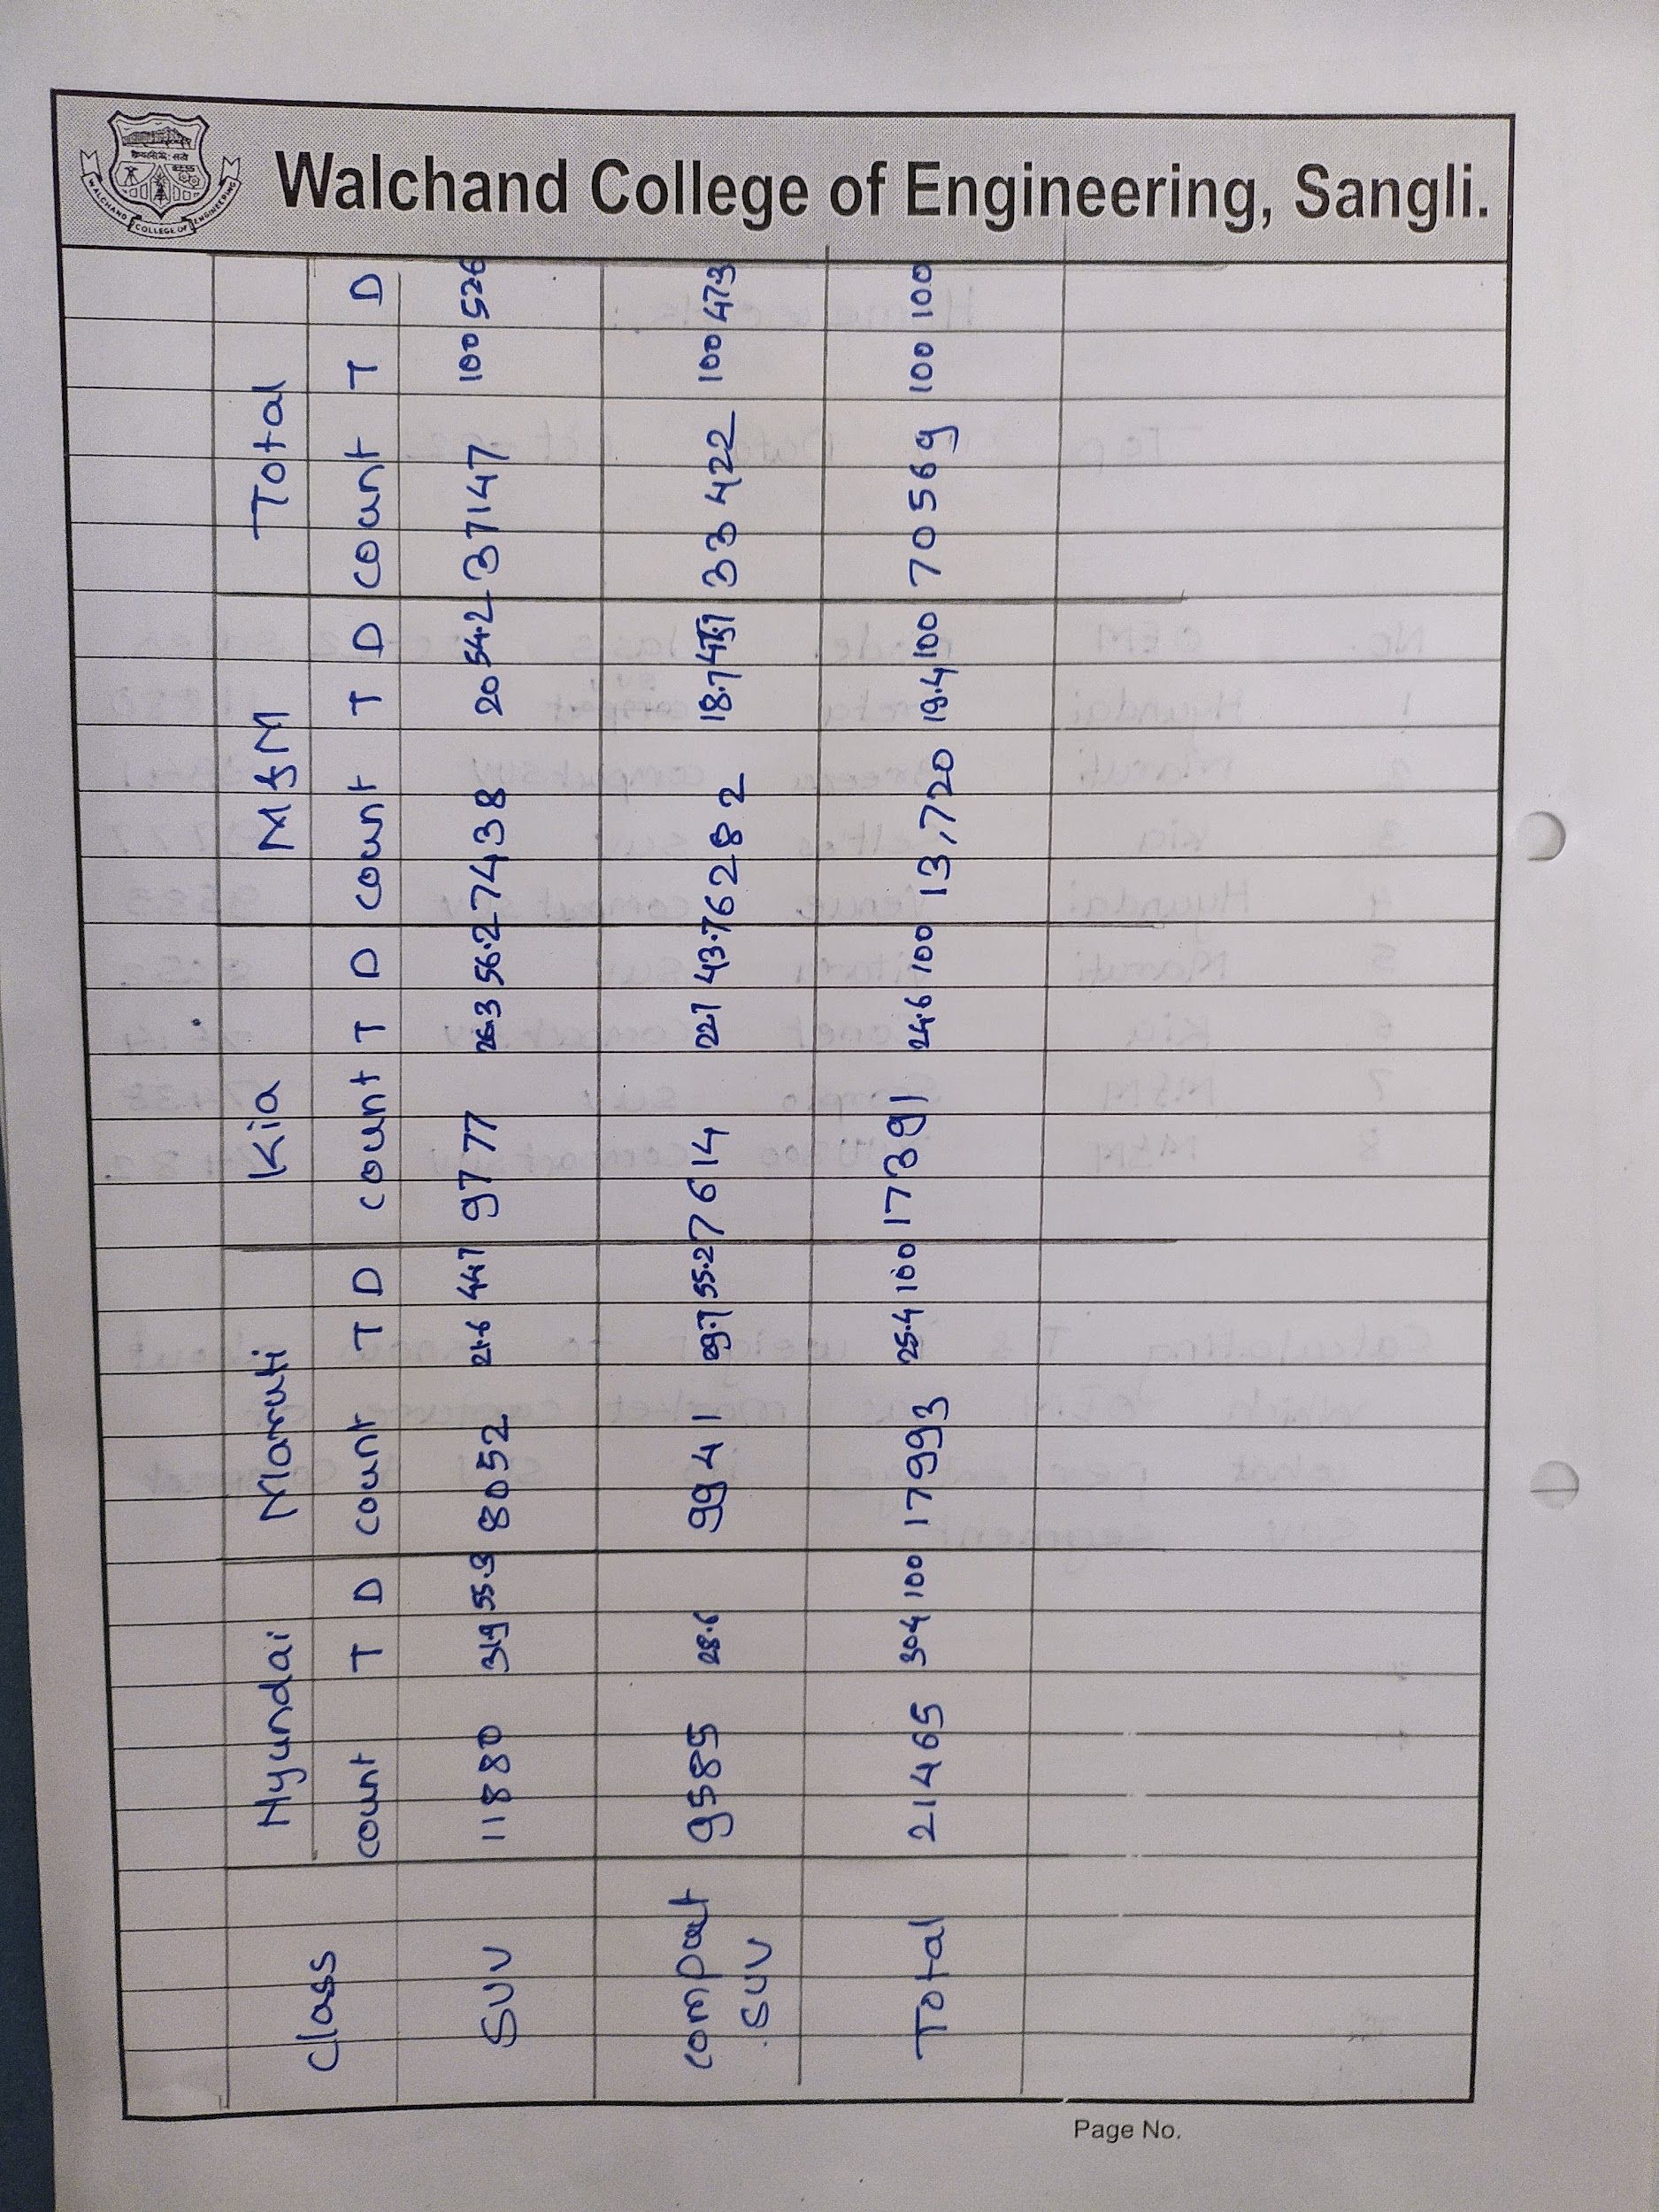 Walchand College of Engineering, Sangli.
WALCHAND COLLEGE OF ENGINEERING
Class Hyundai Maruti Kia M&M Total
count T D count T D count T D count T D count T D
SUV 11880 31.9 55.3 8052 21.6 44.7 9777 26.3 56.2 7438 20 54.2 37147 100 52.6
compact SUV 9585 28.6 9941 55.2 7614 22.1 43.7 6282 18.7 33422 100 47.3
Total 21465 30.4 100 17993 25.4 100 17391 24.6 100 13,720 19.4 100 70569 100 100
Page No.